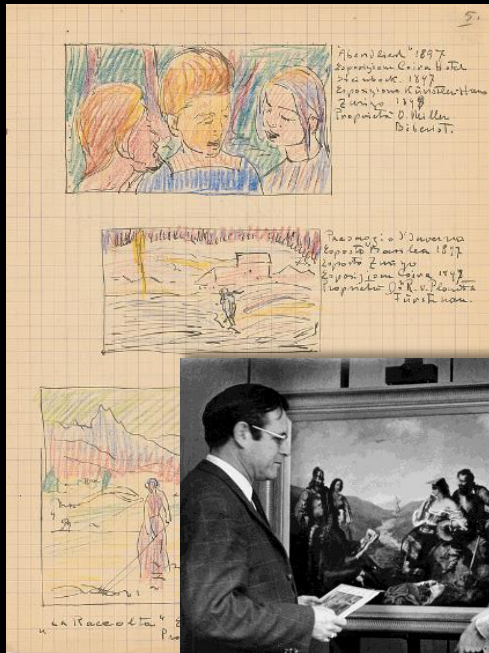 5.
"Abendlied" 1897
Esposizione Coira Hotel
Steinbock. 1897
Esposizione Künstler-Haus
Zurigo 1898
Proprietà O. Miller
Biberist.
Presagio d'Inverno
Esposto Basilea 1897
Esposto Zurigo
Esposizione Coira 1898
Proprietà Dr R. v. Planta
Fürstenau.
"La Raccolta"